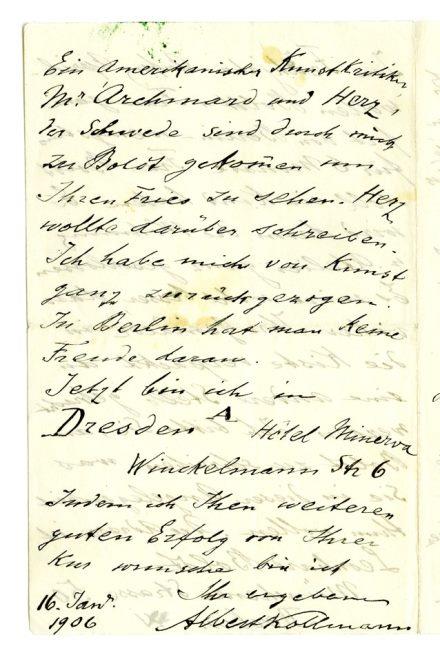 Ein amerikanischer Kunstkritiker
Mr. Archinard und Herz,
der Schwede sind durch mich
zu Boldt gekom̄en um
Ihren Fries zu sehen. Herz
wollte darüber schreiben.
Ich habe mich von Kunst
ganz zurückgezogen.
In Berlin hat man keine
Freude daran.
Jetzt bin ich in
Dresden A Hôtel Minerva
Winckelmann Str 6
Indem ich Ihen weiteren
guten Erfolg von Ihrer
Kur wünsche bin ich
Ihr ergebener
16. Jan. Albert Kollmann
1906